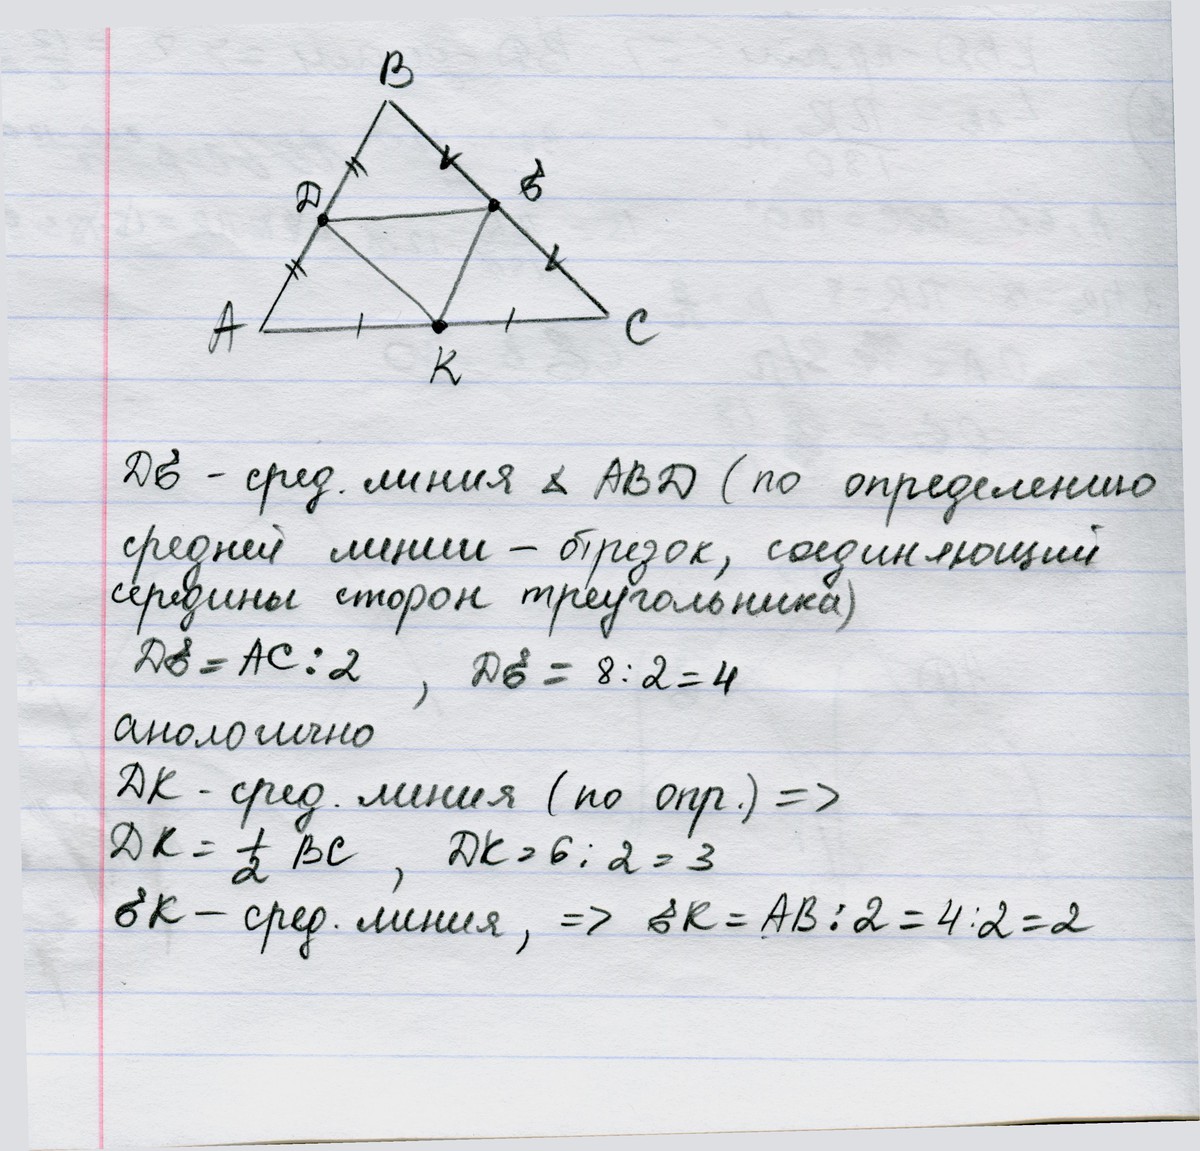 B
D
E
A
K
C
DE - сред. линия △ ABD (по определению
средней линии – отрезок, соединяющий
середины сторон треугольника)
DE = AC : 2 , DE = 8 : 2 = 4
анологично
DK - сред. линия (по опр.) =>
DK = 1/2 BC , DK = 6 : 2 = 3
EK – сред. линия, => EK = AB : 2 = 4 : 2 = 2